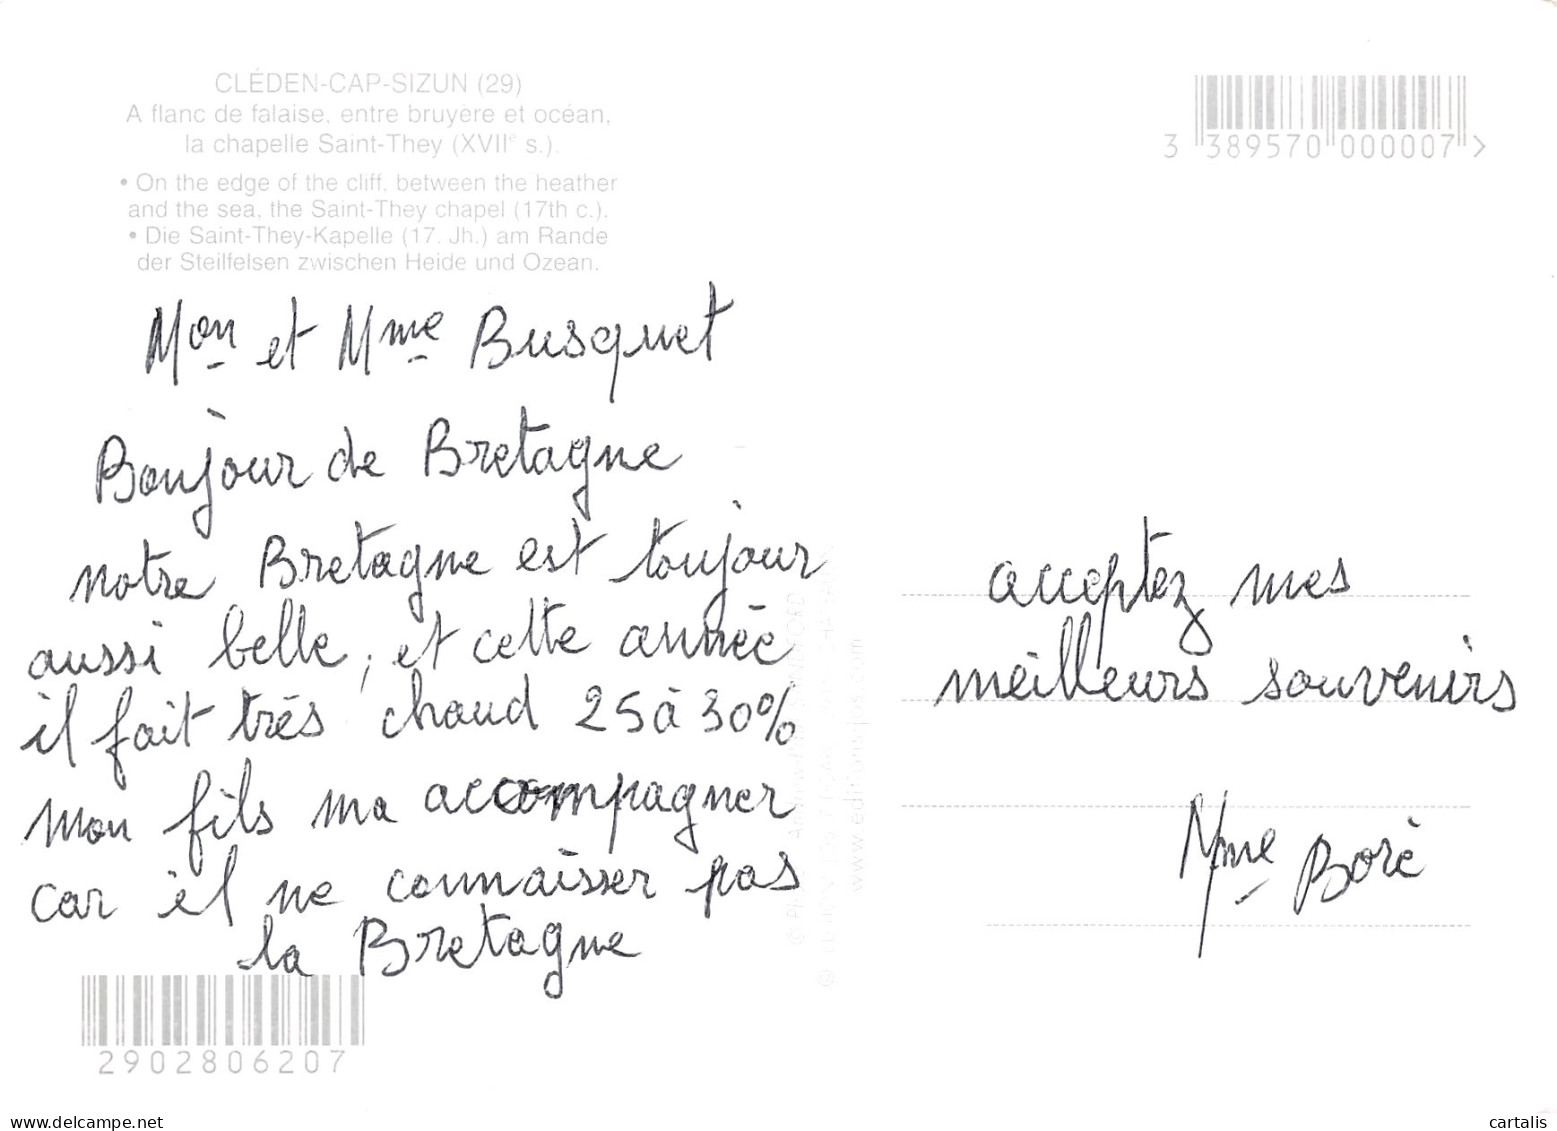 CLÉDEN-CAP-SIZUN (29)
A flanc de falaise, entre bruyère et océan,
la chapelle Saint-They (XVIIe s.).
• On the edge of the cliff, between the heather
and the sea, the Saint-They chapel (17th c.).
• Die Saint-They-Kapelle (17. Jh.) am Rande
der Steilfelsen zwischen Heide und Ozean.
Mon et Mme Busquet
Bonjour de Bretagne
notre Bretagne est toujour
aussi belle, et cette année
il fait très chaud 25 à 30%
Mon fils ma accompagner
car il ne connaisser pas
la Bretagne
2902806207
www.editionsjos.com
3 389570 000007 >
acceptez mes
meilleurs souvenirs
Mme Boré
delcampe.net
cartalis